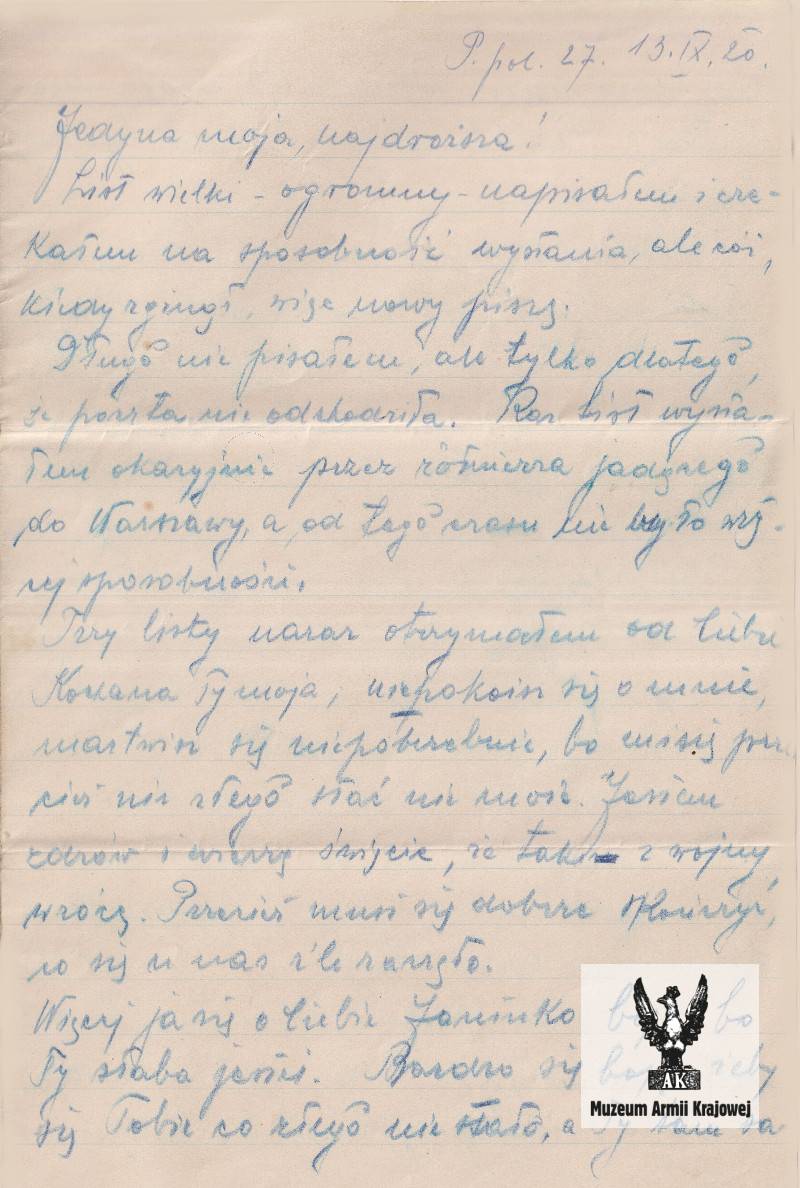 P. pol. 27. 13.IX.20.
Jedyna moja, najdroższa!
List wielki - ogromny - napisałem i cze-
kałem na sposobność wysłania, ale cóż,
kiedy zginął, więc nowy piszę.
Długo nie pisałem, ale tylko dlatego,
że poczta nie odchodziła. Raz list wysła-
łem okazyjnie przez żołnierza jadącego
do Warszawy, a od tego czasu nie było wię-
cej sposobności.
Trzy listy naraz otrzymałem od Ciebie
Kochana Ty moja, niepokoisz się o mnie,
martwisz się niepotrzebnie, bo mi się prze
cież nic złego stać nie może. Jestem
zdrów i wierzę święcie, że tak z wojny
wrócę. Przecież musi się dobrze skończyć,
co się u nas źle zaczęło.
Więcej ja się o Ciebie Janinko bo
Ty słaba jesteś. Bardzo się boję żeby
się Tobie co złego nie stało, a Ty tam
AK
Muzeum Armii Krajowej